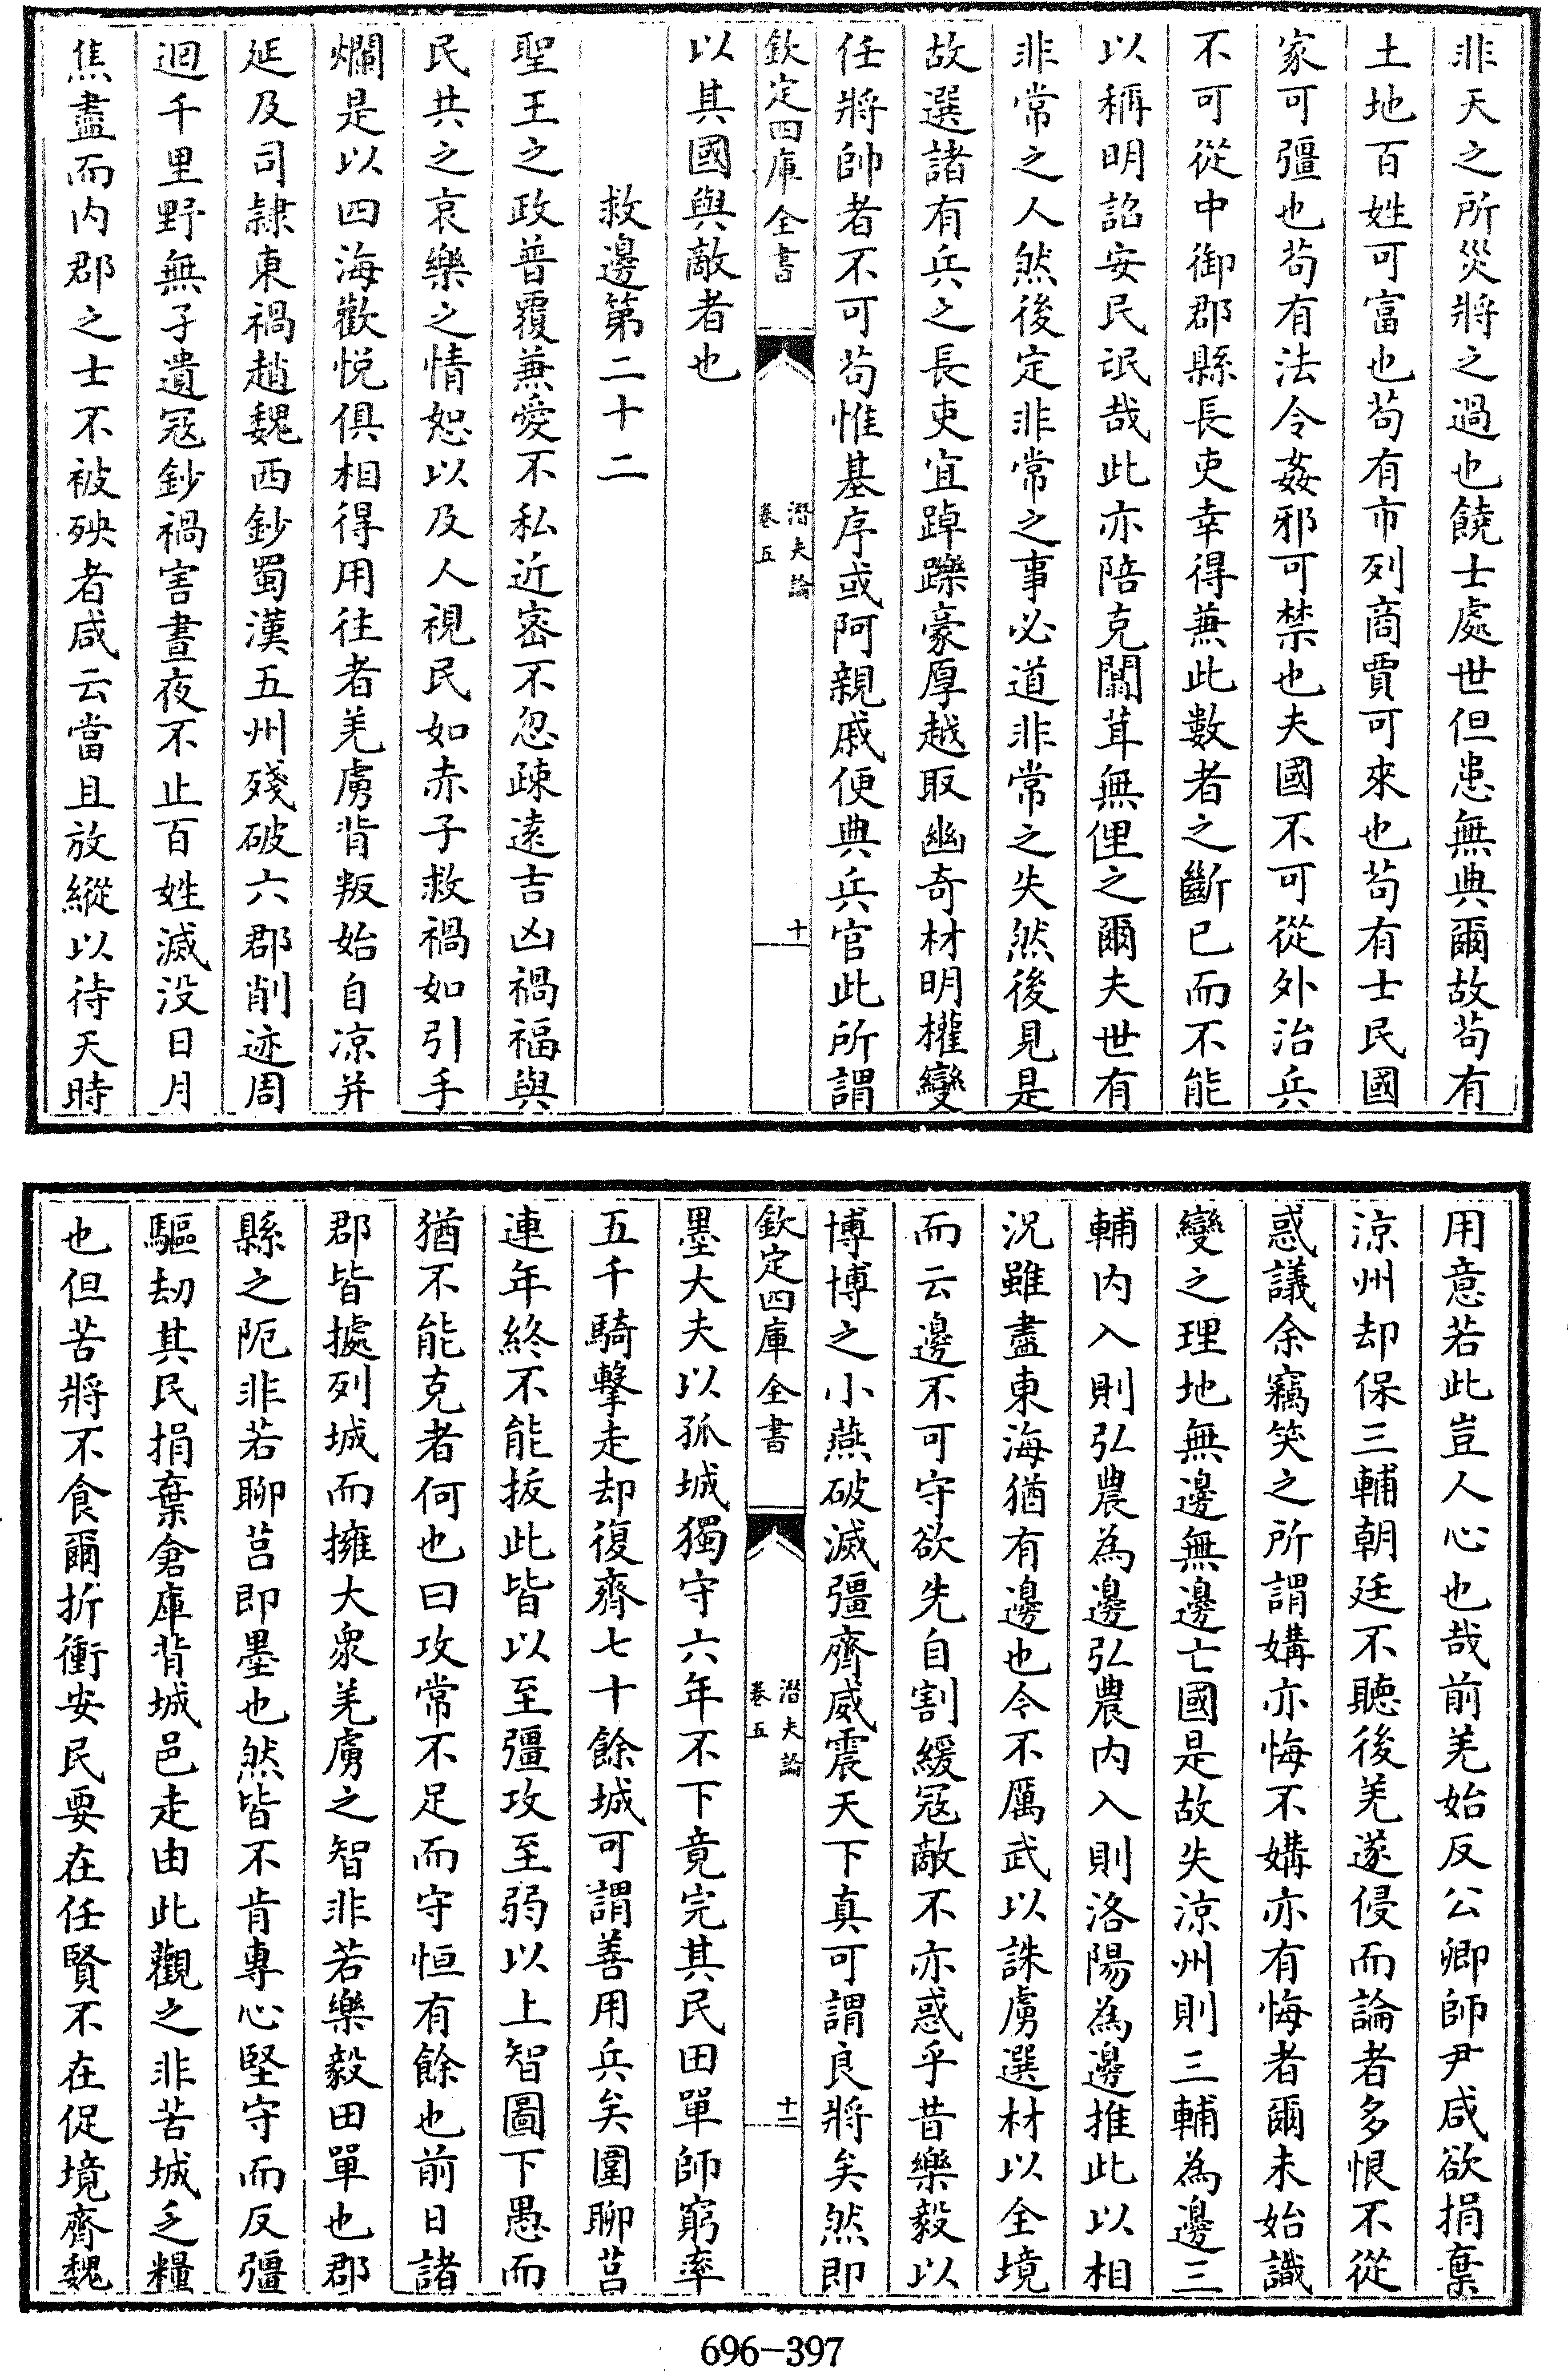 非天之所災將之過也饒士處世但患無典爾故茍有
土地百姓可富也茍有市列商賈可來也茍有士民國
家可彊也茍有法令姦邪可禁也夫國不可從外治兵
不可從中御郡縣長吏幸得兼此數者之斷已而不能
以稱明詔安民氓哉此亦陪克闒茸無俚之爾夫世有
非常之人然後定非常之事必道非常之失然後見是
故選諸有兵之長吏宜踔躒豪厚越取幽奇材明權變
任將帥者不可茍惟基序或阿親戚便典兵官此所謂
欽定四庫全書
潛夫論
卷五
十
以其國與敵者也
救邊第二十二
聖王之政普覆兼愛不私近密不忽疎遠吉凶禍福與
民共之哀樂之情恕以及人視民如赤子救禍如引手
爛是以四海歡悅俱相得用往者羌虜背叛始自涼并
延及司隸東禍趙魏西鈔蜀漢五州殘破六郡削迹周
迴千里野無孑遺寇鈔禍害晝夜不止百姓滅没日月
焦盡而内郡之士不被殃者咸云當且放縱以待天時
用意若此豈人心也哉前羌始反公卿師尹咸欲捐棄
涼州却保三輔朝廷不聽後羌遂侵而論者多恨不從
惑議余竊笑之所謂媾亦悔不媾亦有悔者爾未始識
變之理地無邊無邊亡國是故失涼州則三輔為邊三
輔内入則弘農為邊弘農内入則洛陽為邊推此以相
況雖盡東海猶有邊也今不厲武以誅虜選材以全境
而云邊不可守欲先自割緩寇敵不亦惑乎昔樂毅以
博博之小燕破滅彊齊威震天下真可謂良將矣然即
欽定四庫全書
潛夫論
卷五
十一
墨大夫以孤城獨守六年不下竟完其民田單師窮率
五千騎擊走却復齊七十餘城可謂善用兵矣圍聊莒
連年終不能拔此皆以至彊攻至弱以上智圖下愚而
猶不能克者何也曰攻常不足而守恒有餘也前日諸
郡皆據列城而擁大衆羌虜之智非若樂毅田單也郡
縣之阨非若聊莒即墨也然皆不肯專心堅守而反彊
驅劫其民捐棄倉庫背城邑走由此觀之非苦城乏糧
也但苦將不食爾折衝安民要在任賢不在促境齊魏
696-397